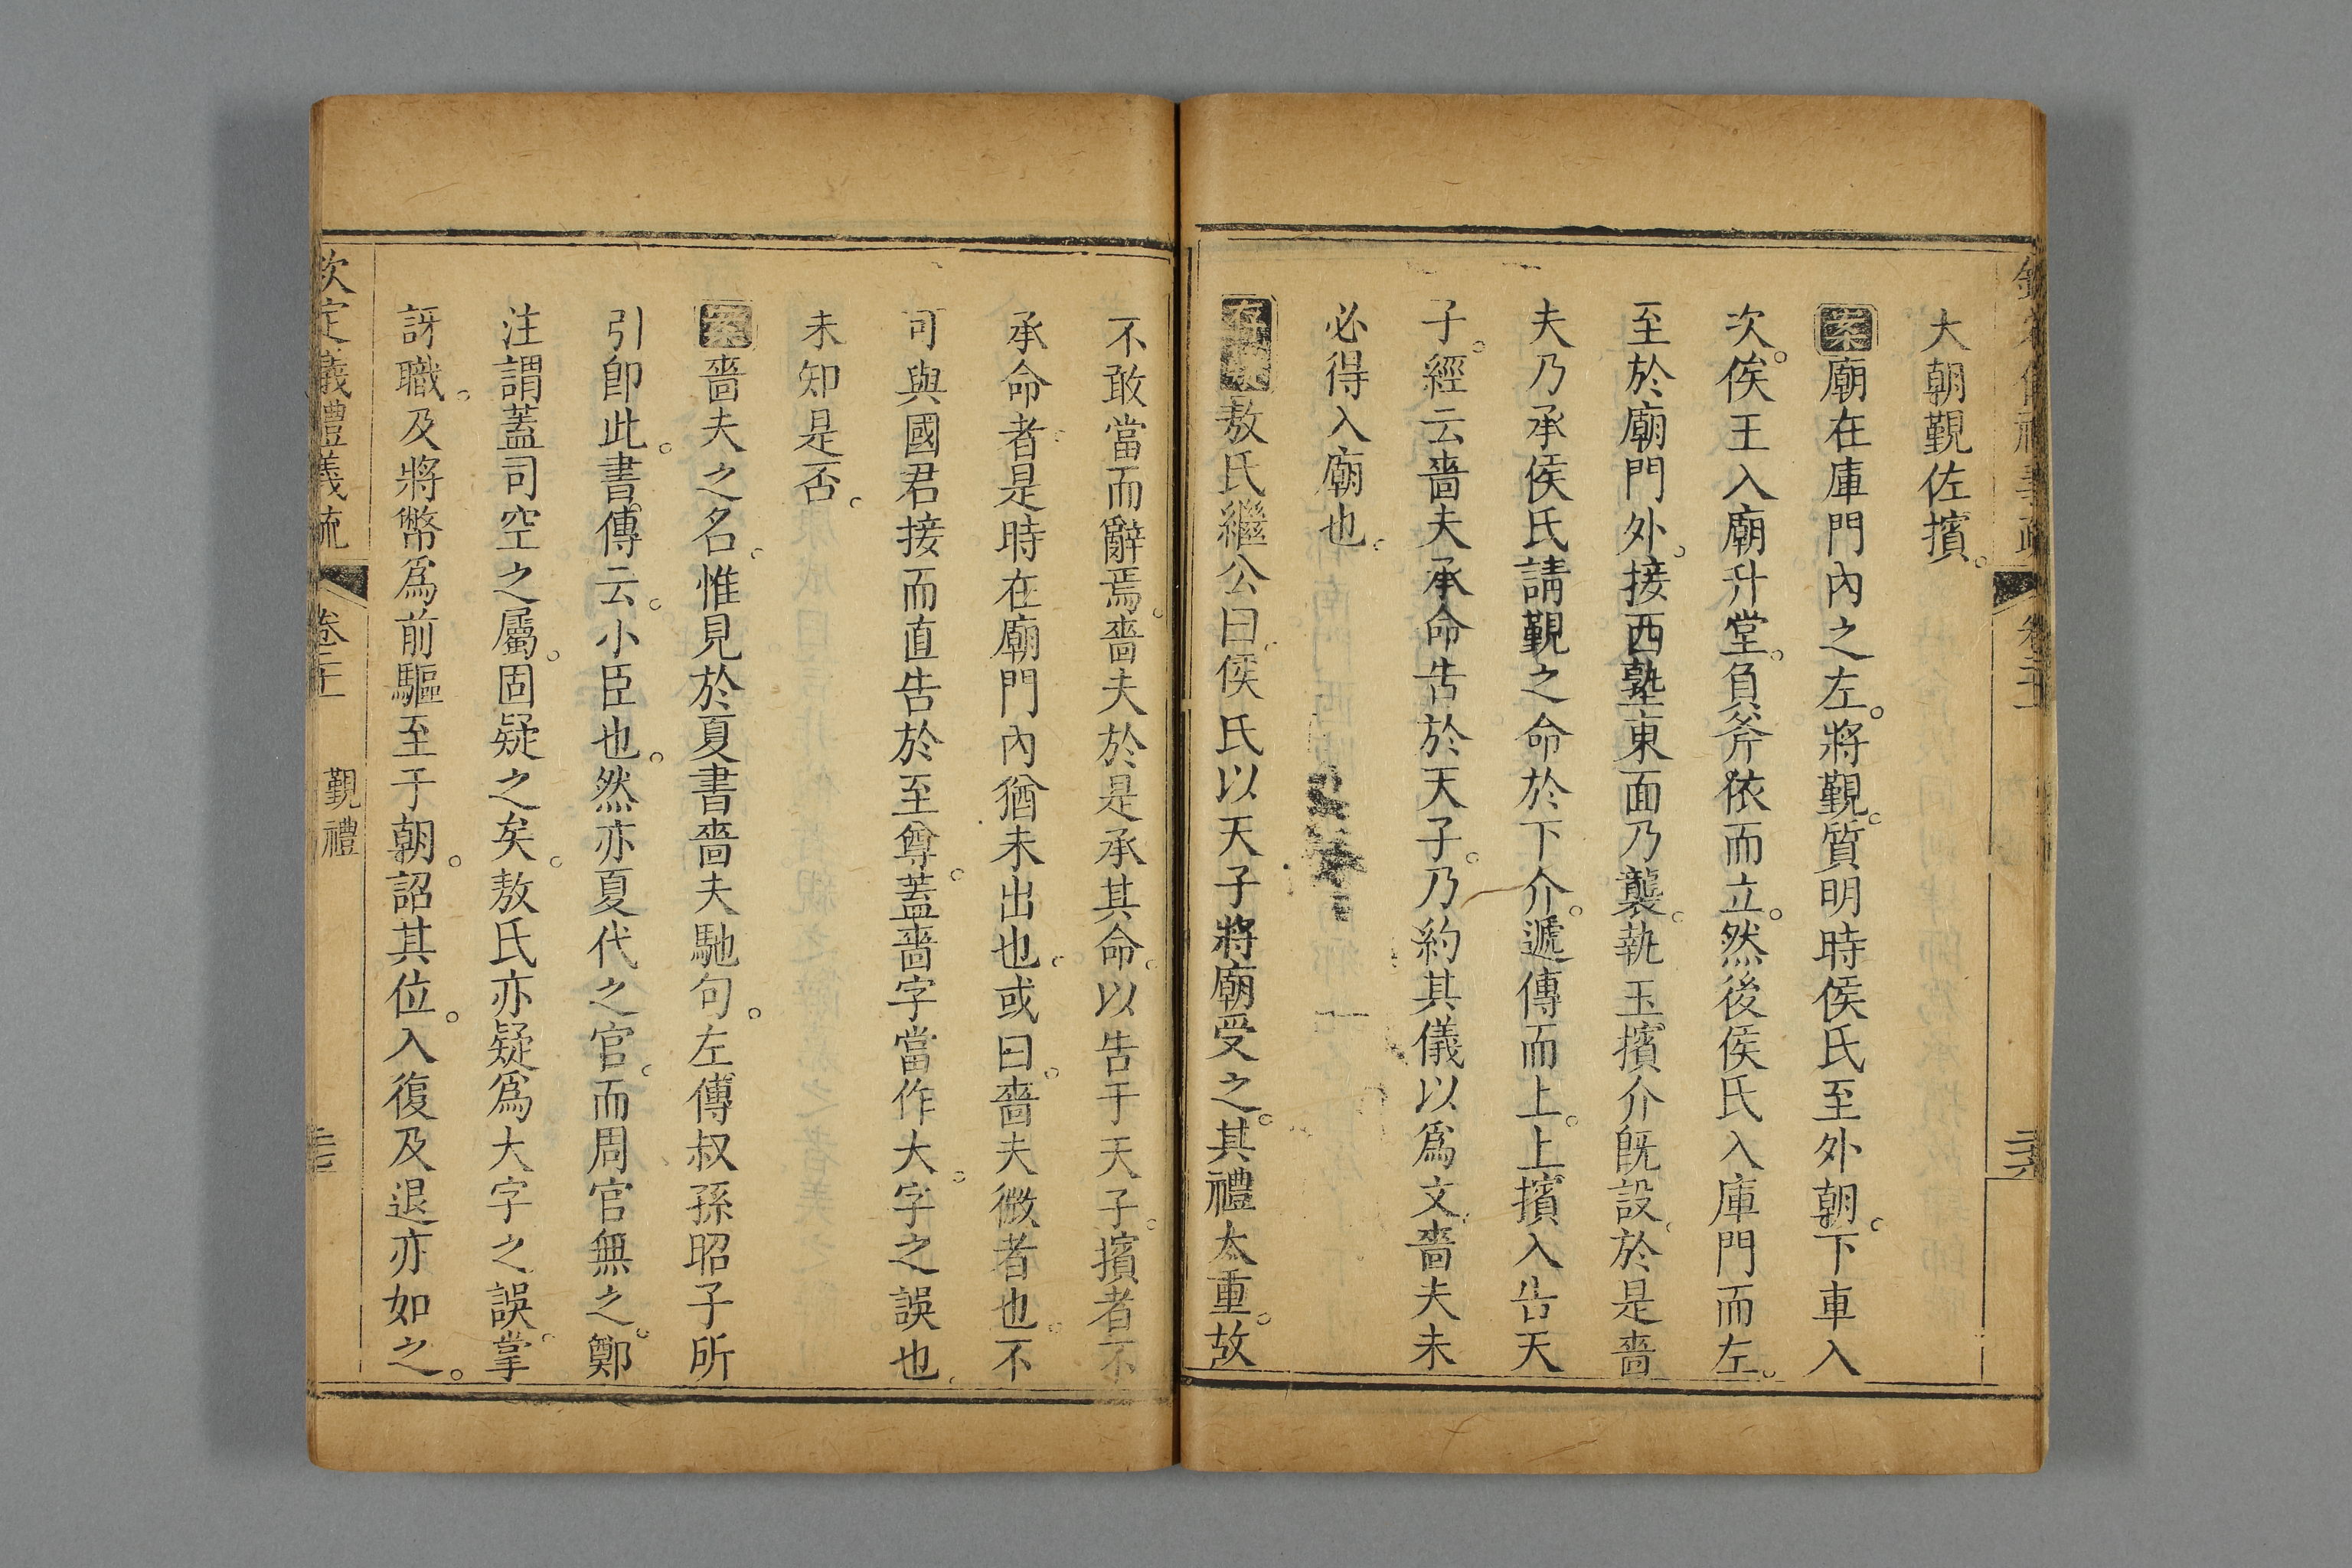 大朝覲佐擯。
案廟在庫門內之左。將覲。質明時侯氏至外朝。下車入
次。俟王入廟升堂。負斧依而立。然後侯氏入庫門而左。
至於廟門外。接西塾東面乃襲。執玉擯介既設。於是嗇
夫乃承侯氏請覲之命於下介。遞傳而上。上擯入告天
子。經云嗇夫承命告於天子。乃約其儀以爲文。嗇夫未
必得入廟也。
敖氏繼公曰。侯氏以天子將廟受之。其禮太重。故
不敢當而辭焉。嗇夫於是承其命。以告于天子。擯者不
承命者。是時在廟門內猶未出也。或曰。嗇夫微者也。不
司與國君接而直告於至尊。蓋嗇字當作大。字之誤也。
未知是否。
案嗇夫之名。惟見於夏書嗇夫馳句。左傳叔孫昭子所
引卽此。書傳云。小臣也。然亦夏代之官。而周官無之。鄭
注謂蓋司空之屬。固疑之矣。敖氏亦疑爲大字之誤。掌
訝職。及將幣爲前驅至于朝。詔其位。入復及退亦如之。
欽定儀禮義疏 卷二十 覲禮